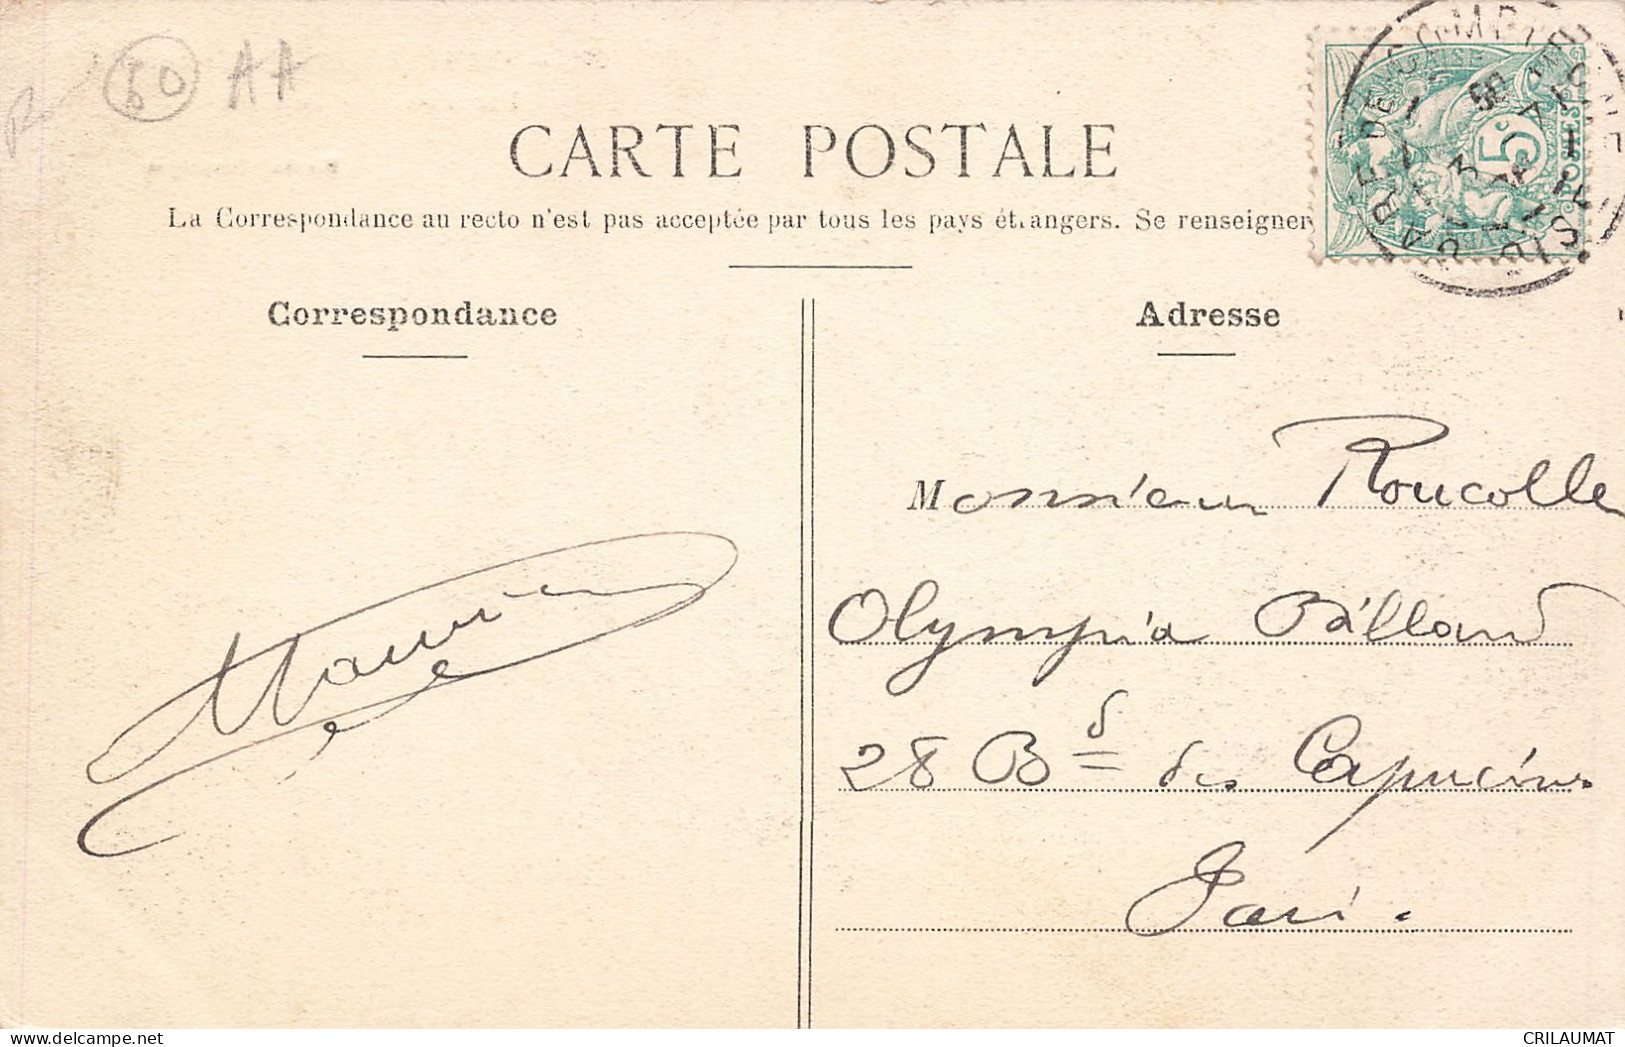 60 AA
CARTE POSTALE
La Correspondance au recto n'est pas acceptée par tous les pays étrangers. Se renseigner
Correspondance
Adresse
Monsieur Roucolle
Olympia Billard
28 Bd des Capucines
Paris.
5c
POSTES
GARE DE COMPIEGNE
OISE
CRILAUMAT